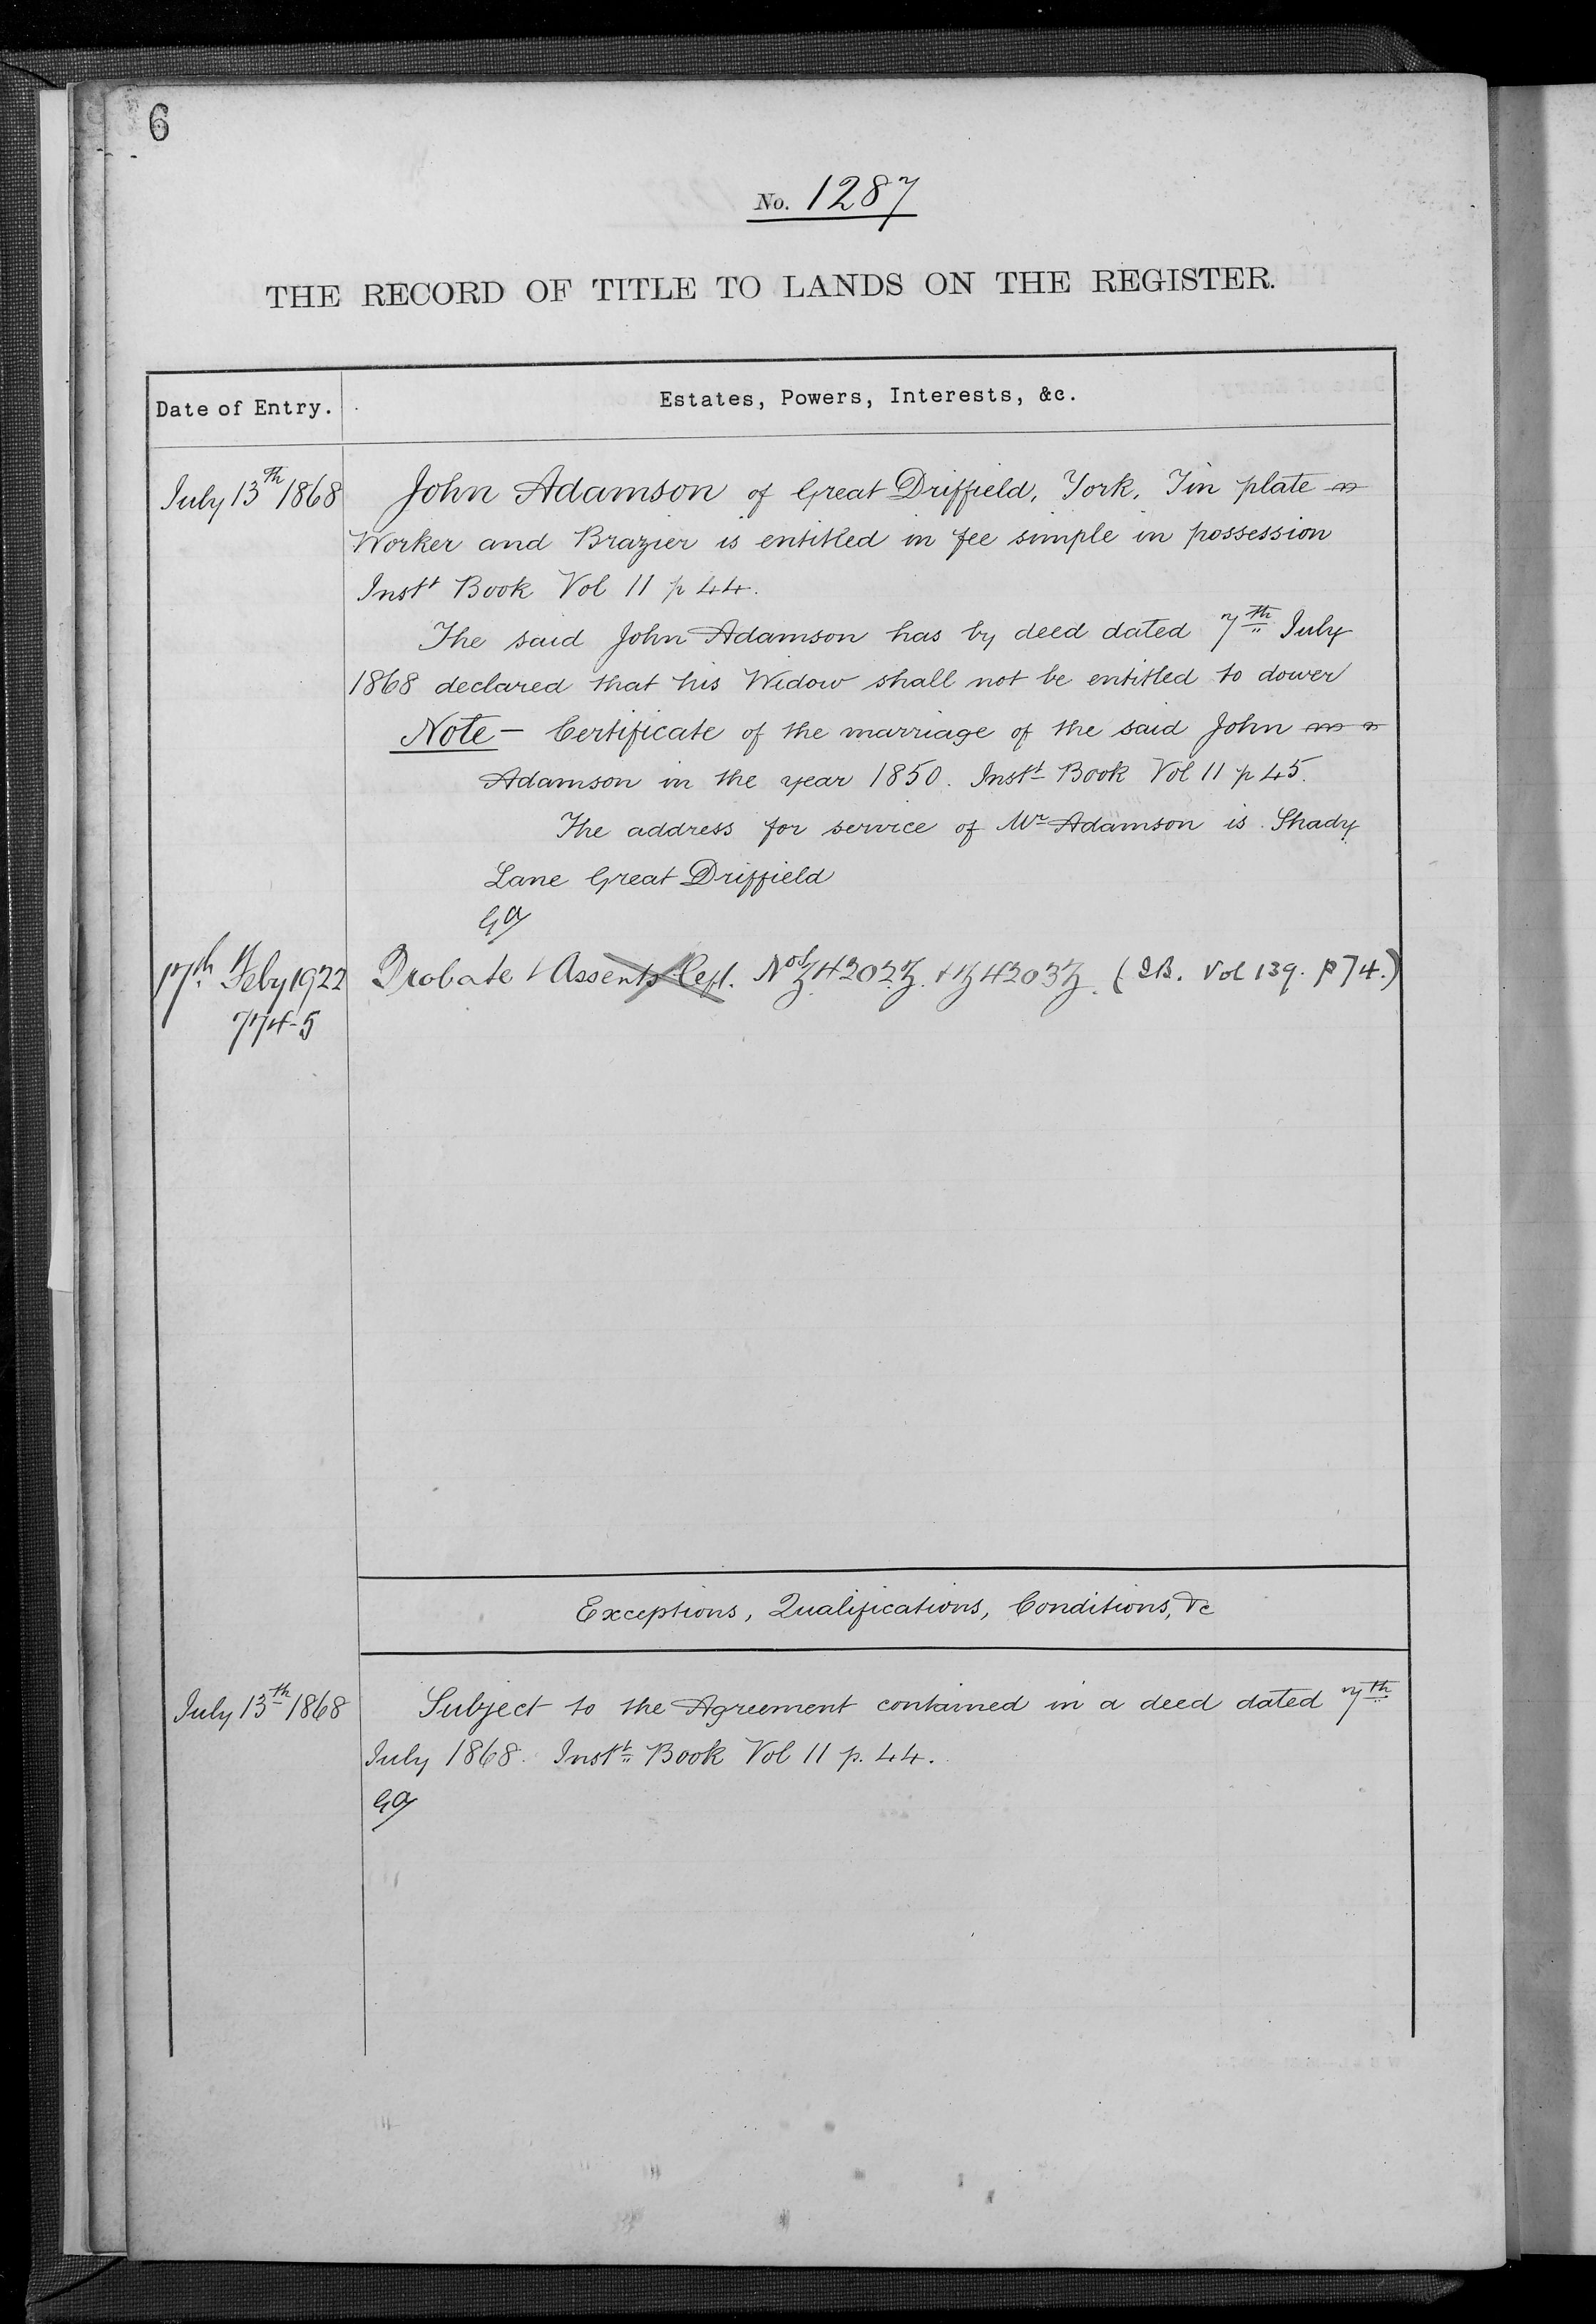 6
No. 1287
THE RECORD OF TITLE TO LANDS ON THE REGISTER.
Date of Entry.
Estates, Powers, Interests, &c.
July 13th 1868
John Adamson of Great Driffield, York, Tin plate
Worker and Brazier is entitled in fee simple in possession
Instt Book Vol 11 p 44.
The said John Adamson has by deed dated 7th July
1868 declared that his Widow shall not be entitled to dower
Note - Certificate of the marriage of the said John
Adamson in the year 1850. Instt Book Vol 11 p 45.
The address for service of Mr Adamson is Shady
Lane Great Driffield
17th Feby 1922
774-5
Probate & Assents Nos (I.B. Vol 139. p 74.)
Exceptions, Qualifications, Conditions, &c
July 13th 1868
Subject to the Agreement contained in a deed dated 7th
July 1868. Instt Book Vol 11 p. 44.